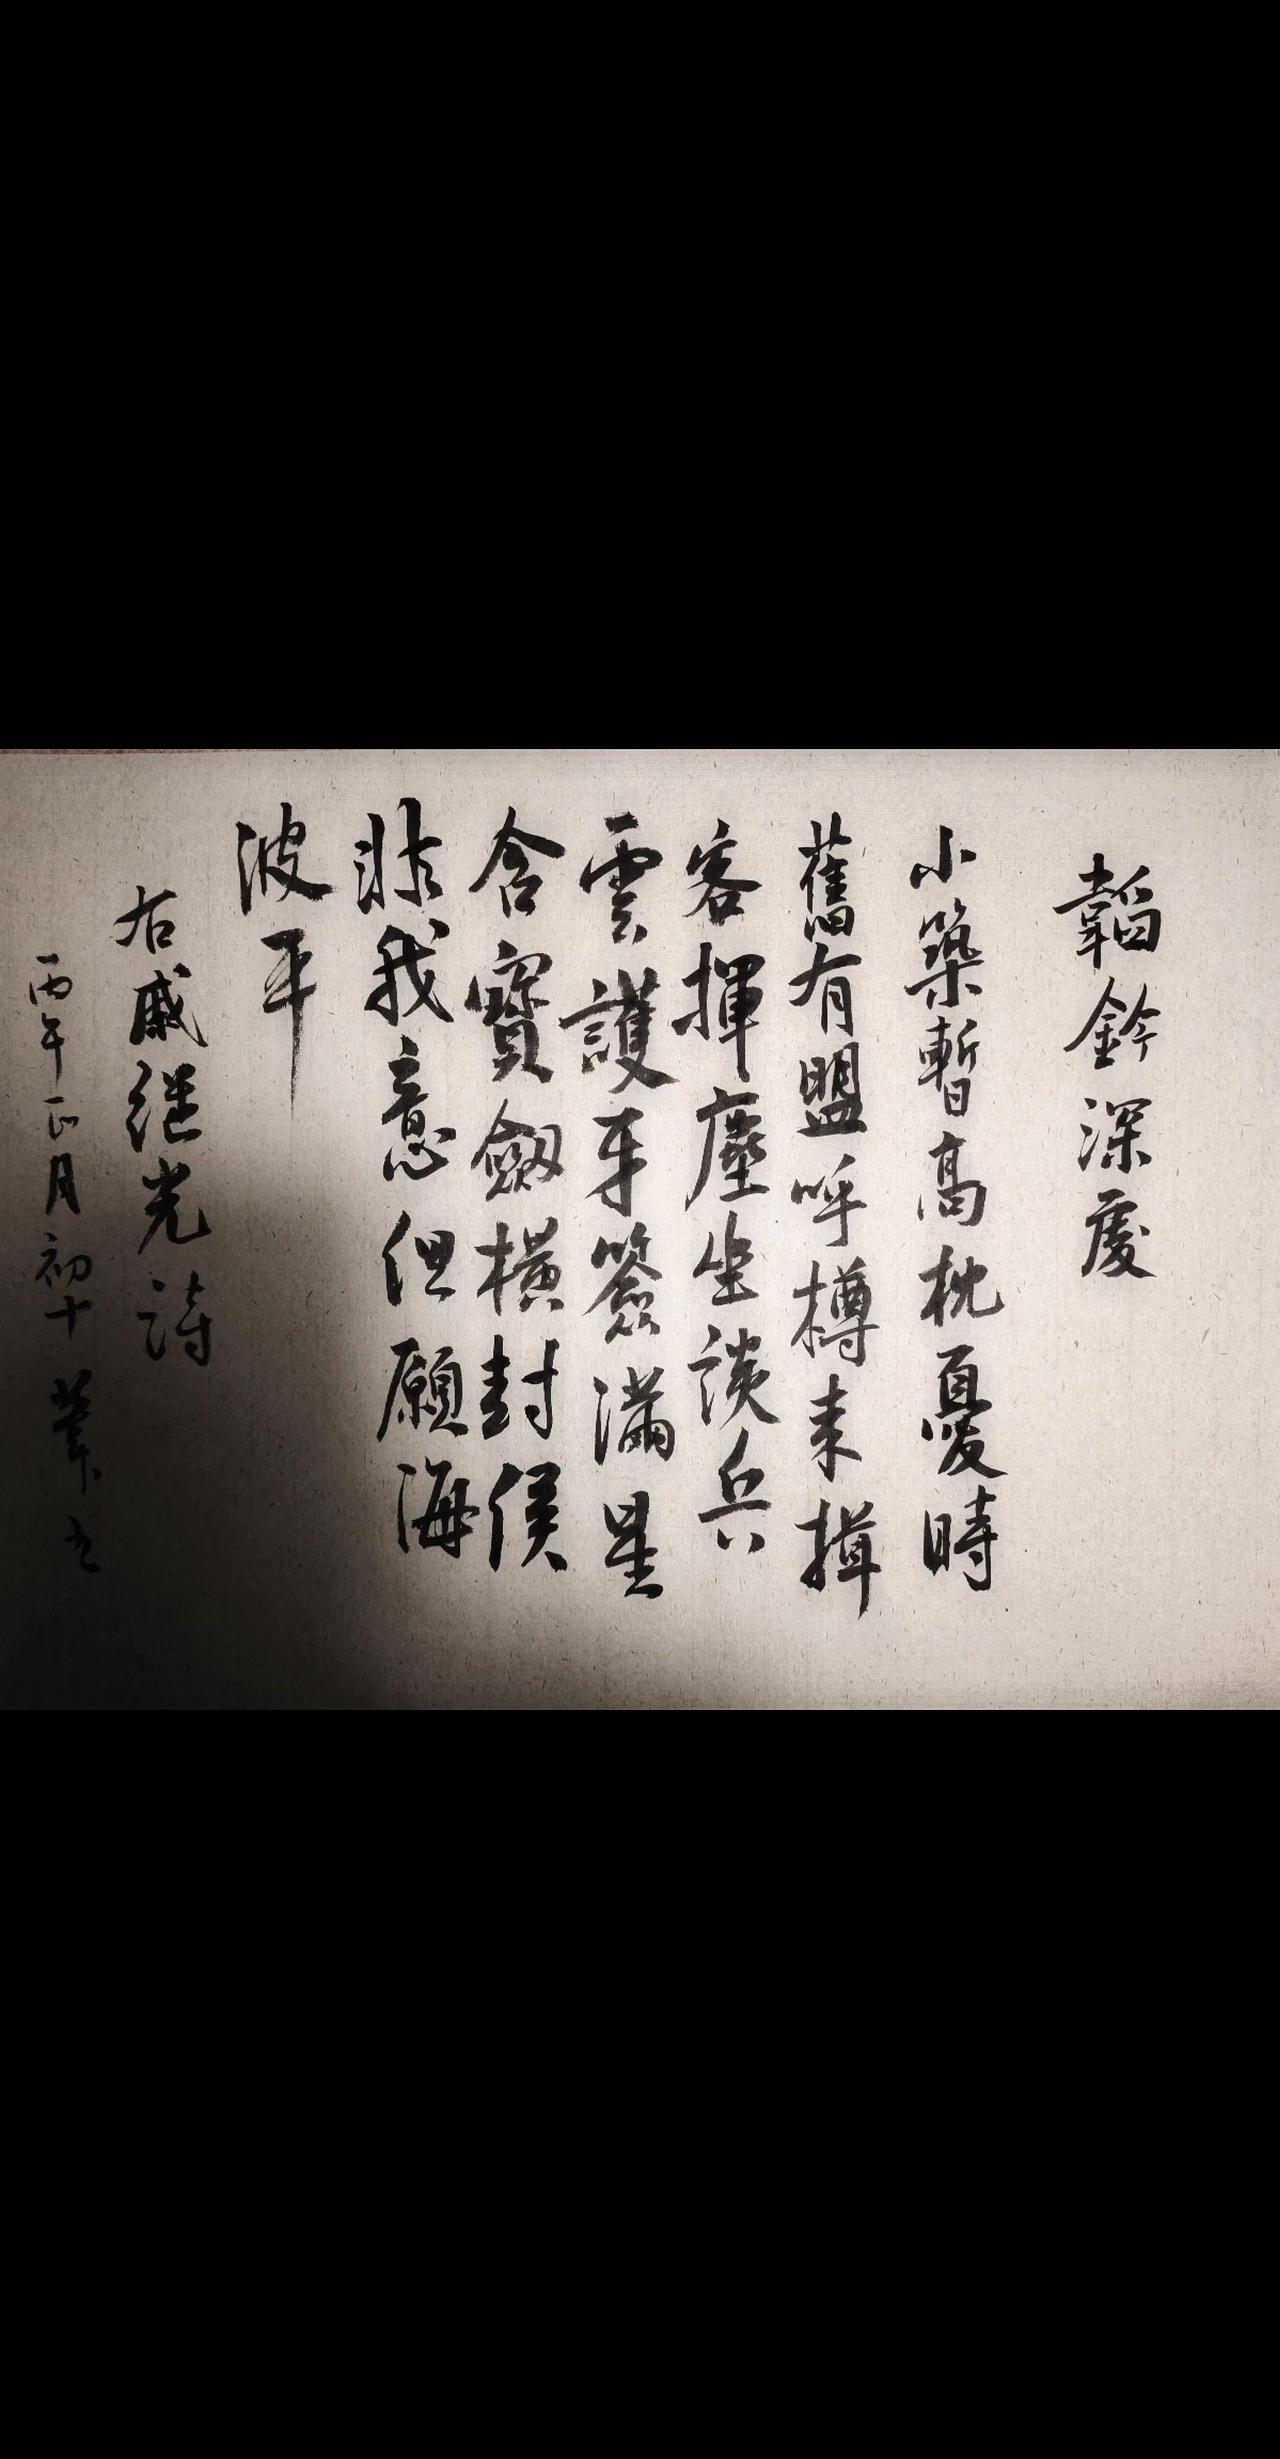 韜鈐深處
小築暫高枕憂時
舊有盟呼樽来揖
客揮麈坐談兵
雲護牙簽滿星
含寶劍橫封侯
非我意但願海
波平
右戚继光詩
丙午正月初十